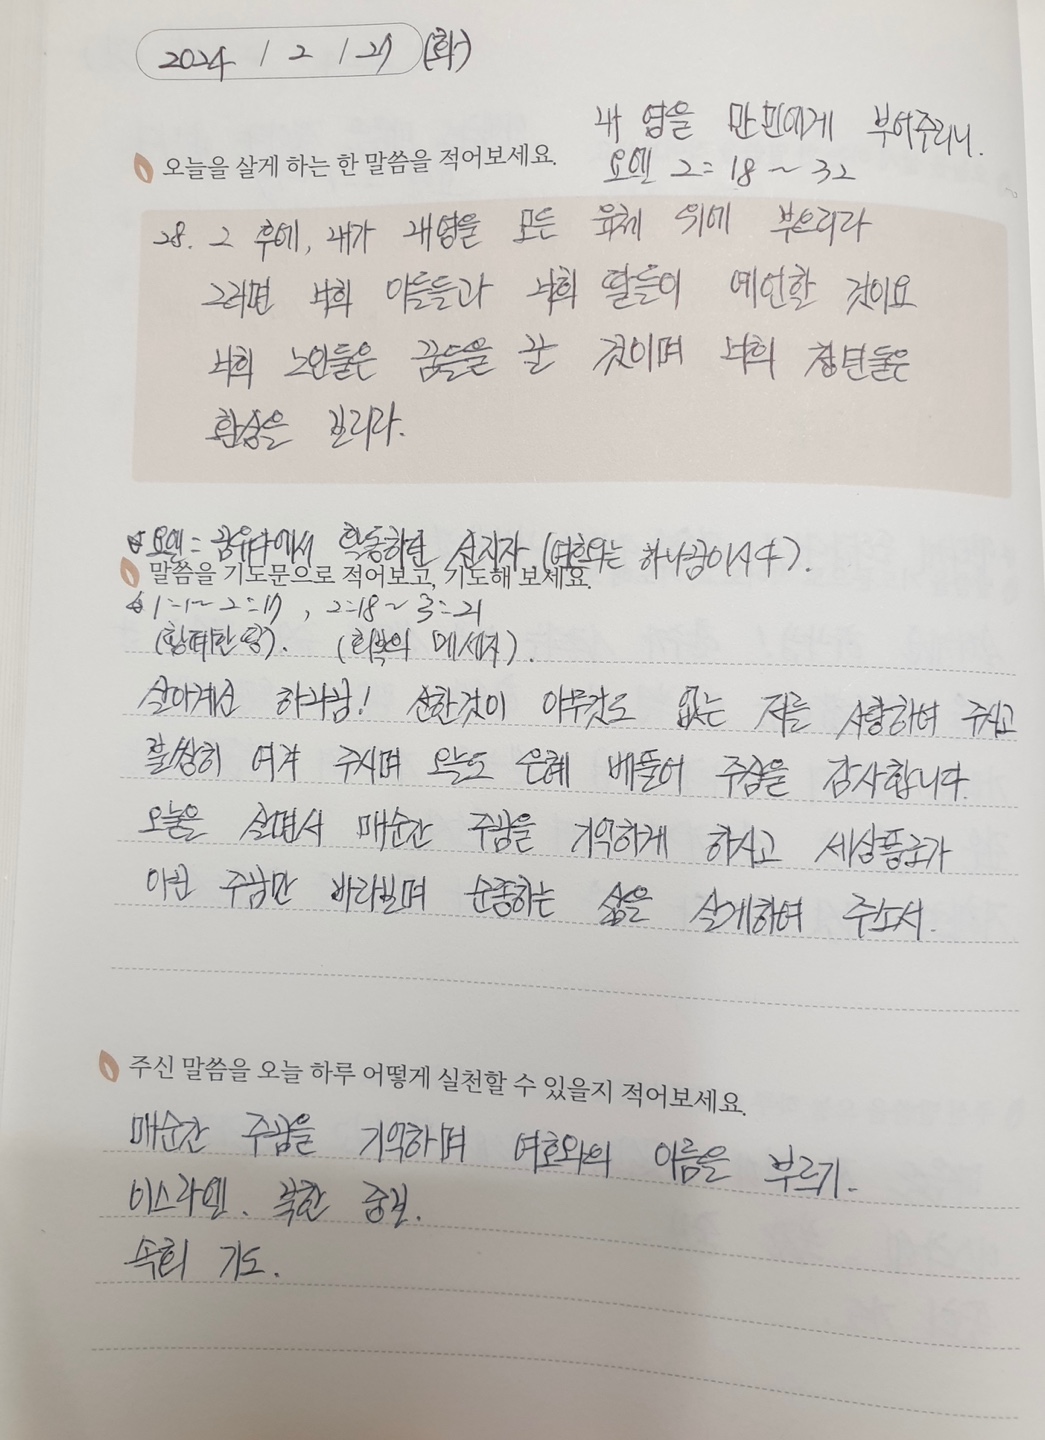 2024 / 2 / 27 (화)
내 영을 만민에게 부어주리니.
오늘을 살게 하는 한 말씀을 적어보세요.
요엘 2:18 ~ 32
28. 그 후에, 내가 내영을 모든 육체 위에 부으리라
그러면 너희 아들들과 너희 딸들이 예언할 것이요
너희 노인들은 꿈들을 꿀 것이며 너희 청년들은
환상을 보리라.
요엘 = 남유다에서 활동하던 선지자 (여호와는 하나님이시다).
말씀을 기도문으로 적어보고, 기도해 보세요.
1:1~2:17, 2:18~3:21
(황폐한 땅). (회복의 메세지).
살아계신 하나님! 선한것이 아무것도 없는 저를 사랑하여 주시고
불쌍히 여겨 주시며 오늘도 은혜 베풀어 주심을 감사합니다.
오늘을 살면서 매순간 주님을 기억하게 하시고 세상풍조가
아닌 주님만 바라보며 순종하는 삶을 살게하여 주소서.
주신 말씀을 오늘 하루 어떻게 실천할 수 있을지 적어보세요.
매순간 주님을 기억하며 여호와의 이름을 부르기.
이스라엘. 북한 중보.
속회 기도.